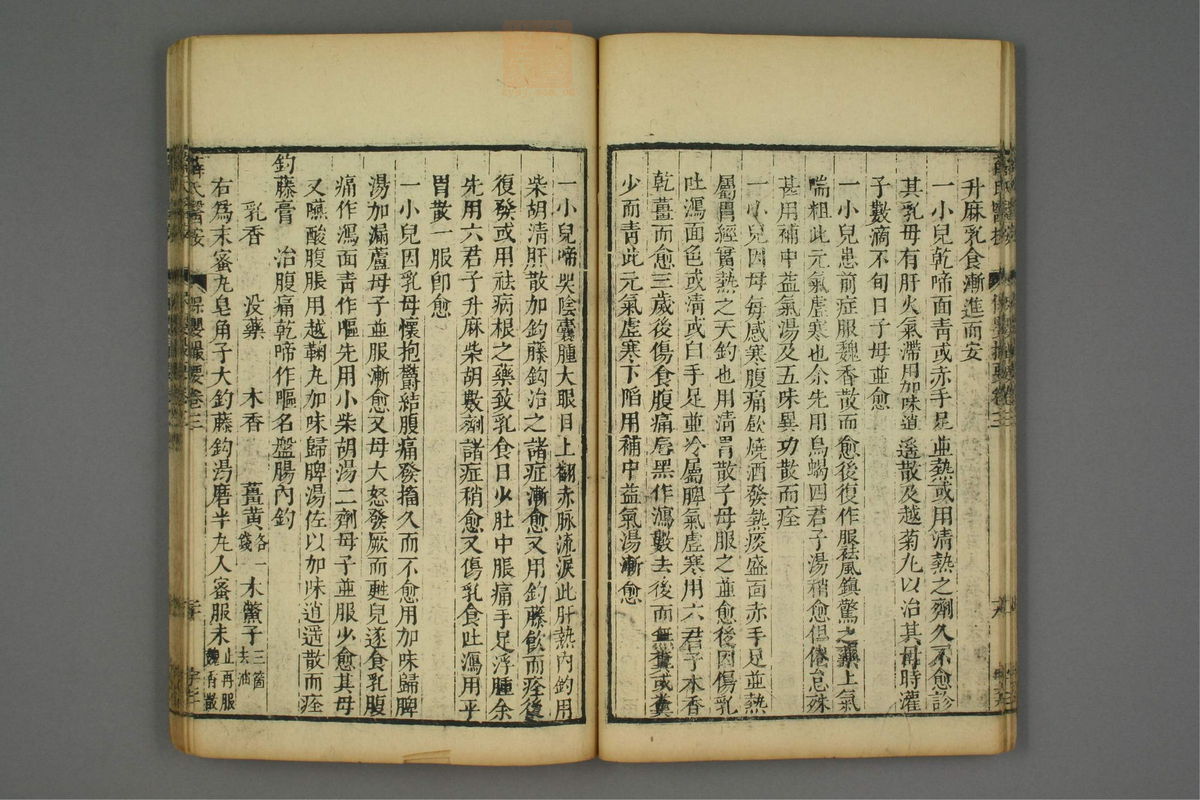 升麻乳食漸進而安
一小兒乾啼面青或赤手足並熱或用清熱之劑久不愈診
其乳母有肝火氣滯用加味逍遙散及越菊丸以治其母時灌
子數滴不旬日子母並愈
一小兒患前症服魏香散而愈後復作服祛風鎮驚之藥上氣
喘粗此元氣虛寒也余先用烏蝎四君子湯稍愈但倦怠殊
甚用補中益氣湯及五味異功散而痊
一小兒因母每感寒腹痛飲燒酒發熱痰盛面赤手足並熱
屬胃經實熱之天釣也用清胃散子母服之並愈後因傷乳
吐瀉面色或清或白手足並冷屬脾氣虛寒用六君子木香
乾薑而愈三歲後傷食腹痛唇黑作瀉數去後而無糞或糞
少而青此元氣虛寒下陷用補中益氣湯漸愈
一小兒啼哭陰囊腫大眼目上翻赤脉流淚此肝熱內釣用
柴胡清肝散加鈎藤鈎治之諸症漸愈又用釣藤飲而痊後
復發或用祛病根之藥致乳食日少肚中脹痛手足浮腫余
先用六君子升麻柴胡數劑諸症稍愈又傷乳食吐瀉用平
胃散一服即愈
一小兒因乳母懷抱鬱結腹痛發搐久而不愈用加味歸脾
湯加漏蘆母子並服漸愈又母大怒發厥而甦兒遂食乳腹
痛作瀉面青作嘔先用小柴胡湯二劑母子並服少愈其母
又嚥酸腹脹用越鞠丸加味歸脾湯佐以加味逍遥散而痊
釣藤膏 治腹痛乾啼作嘔名盤腸內釣
乳香 没藥 木香 薑黃各一錢 木鱉子三箇去油
右為末蜜丸皂角子大釣藤鈎湯磨半丸入蜜服未止再服魏香散
薛氏醫按 保嬰撮要卷三